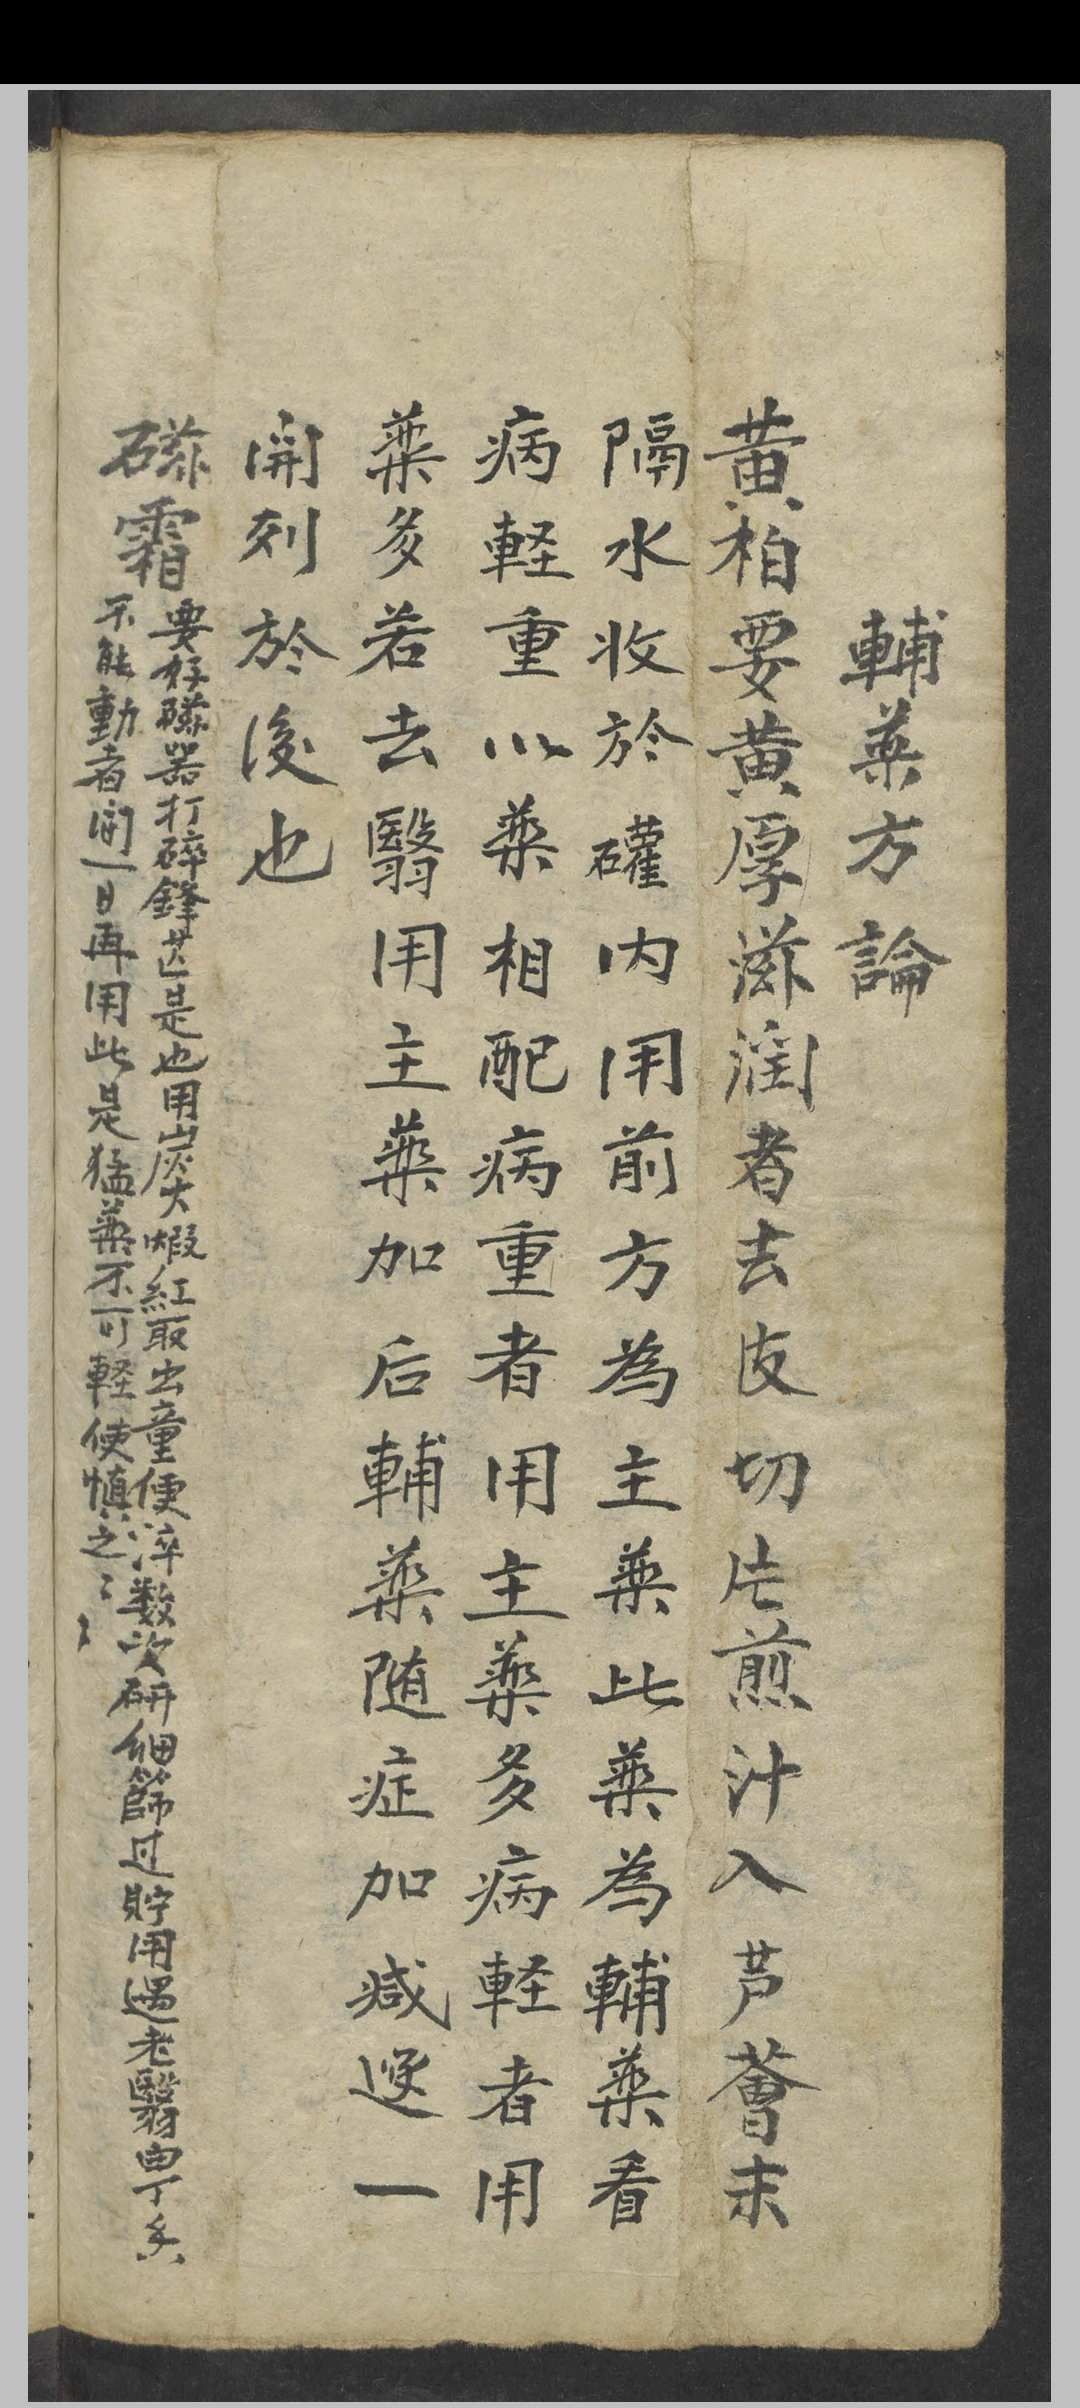 輔薬方論
黄柏要黄厚滋潤者去皮切片煎汁入芦薈末
隔水收於礶内用前方為主薬此薬為輔薬看
病軽重以薬相配病重者用主薬多病軽者用
薬多若去翳用主薬加后輔薬随症加减逐一
開列於後也
磁霜
要好磁器打碎鋒芒是也用炭火煅紅取出童便淬数次研細篩过貯用遇老翳
不能動者開一日再用此是猛薬不可軽使慎之〻〻